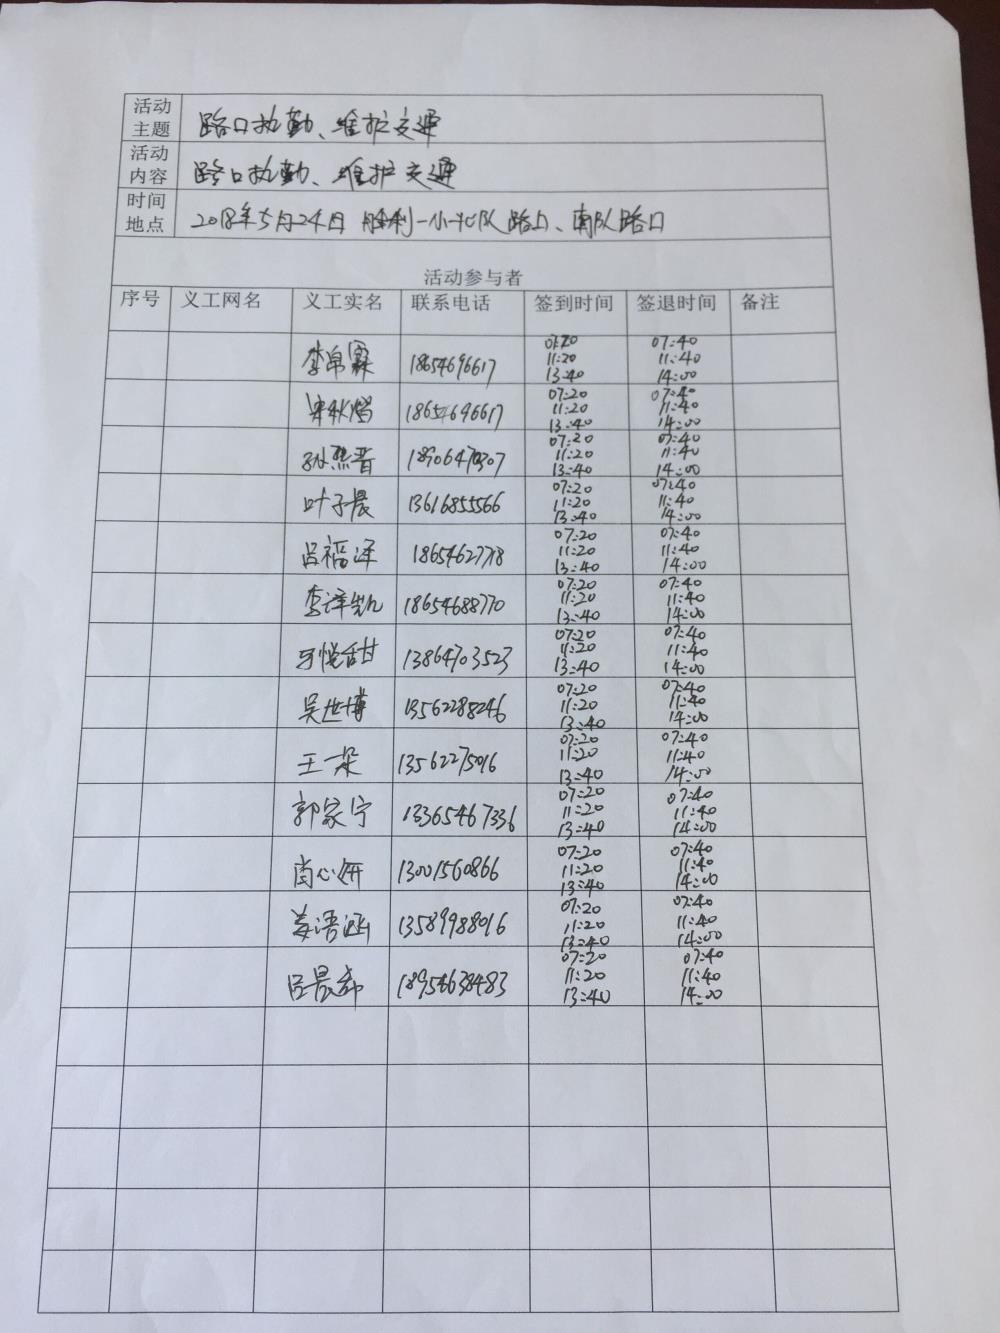 活动主题 路口执勤、维护交通
活动内容 路口执勤、维护交通
时间地点 2018年5月24日 胜利一小北队路口、南队路口
活动参与者
序号 义工网名 义工实名 联系电话 签到时间 签退时间 备注
李帛霖 18654696617 07:20 07:40
11:20 11:40
13:40 14:00
宋秋熠 18654696617 07:20 07:40
11:20 11:40
13:40 14:00
孙熙晋 07:20 07:40
11:20 11:40
13:40 14:00
叶子晨 13616855566 07:20 07:40
11:20 11:40
13:40 14:00
吕福泽 07:20 07:40
11:20 11:40
13:40 14:00
李泽凯 18654688770 07:20 07:40
11:20 11:40
13:40 14:00
悦甜 13864703523 07:20 07:40
11:20 11:40
13:40 14:00
吴世博 13562288246 07:20 07:40
11:20 11:40
13:40 14:00
王一朵 13562275016 07:20 07:40
11:20 11:40
13:40 14:00
郭家宁 13365467336 07:20 07:40
11:20 11:40
13:40 14:00
肖心妍 13001560866 07:20 07:40
11:20 11:40
13:40 14:00
姜语涵 13589988016 07:20 07:40
11:20 11:40
13:40 14:00
吕晨 18954638483 07:20 07:40
11:20 11:40
13:40 14:00